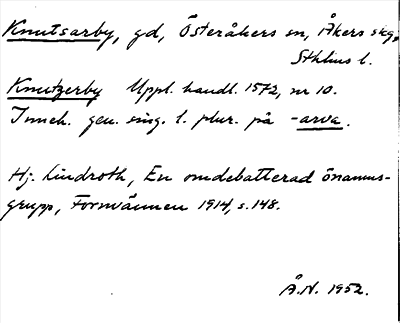 Knutsarby, gd, Österåkers sn, Åkers skg,
Sthlms l.
Knutzerby Uppl. handl. 1572, nr 10.
Inneh. gen. sing. l. plur. på -arva.
Hj. Lindroth, En omdebatterad önamns-
grupp, Fornvännen 1914, s. 148.
Å.N. 1952.